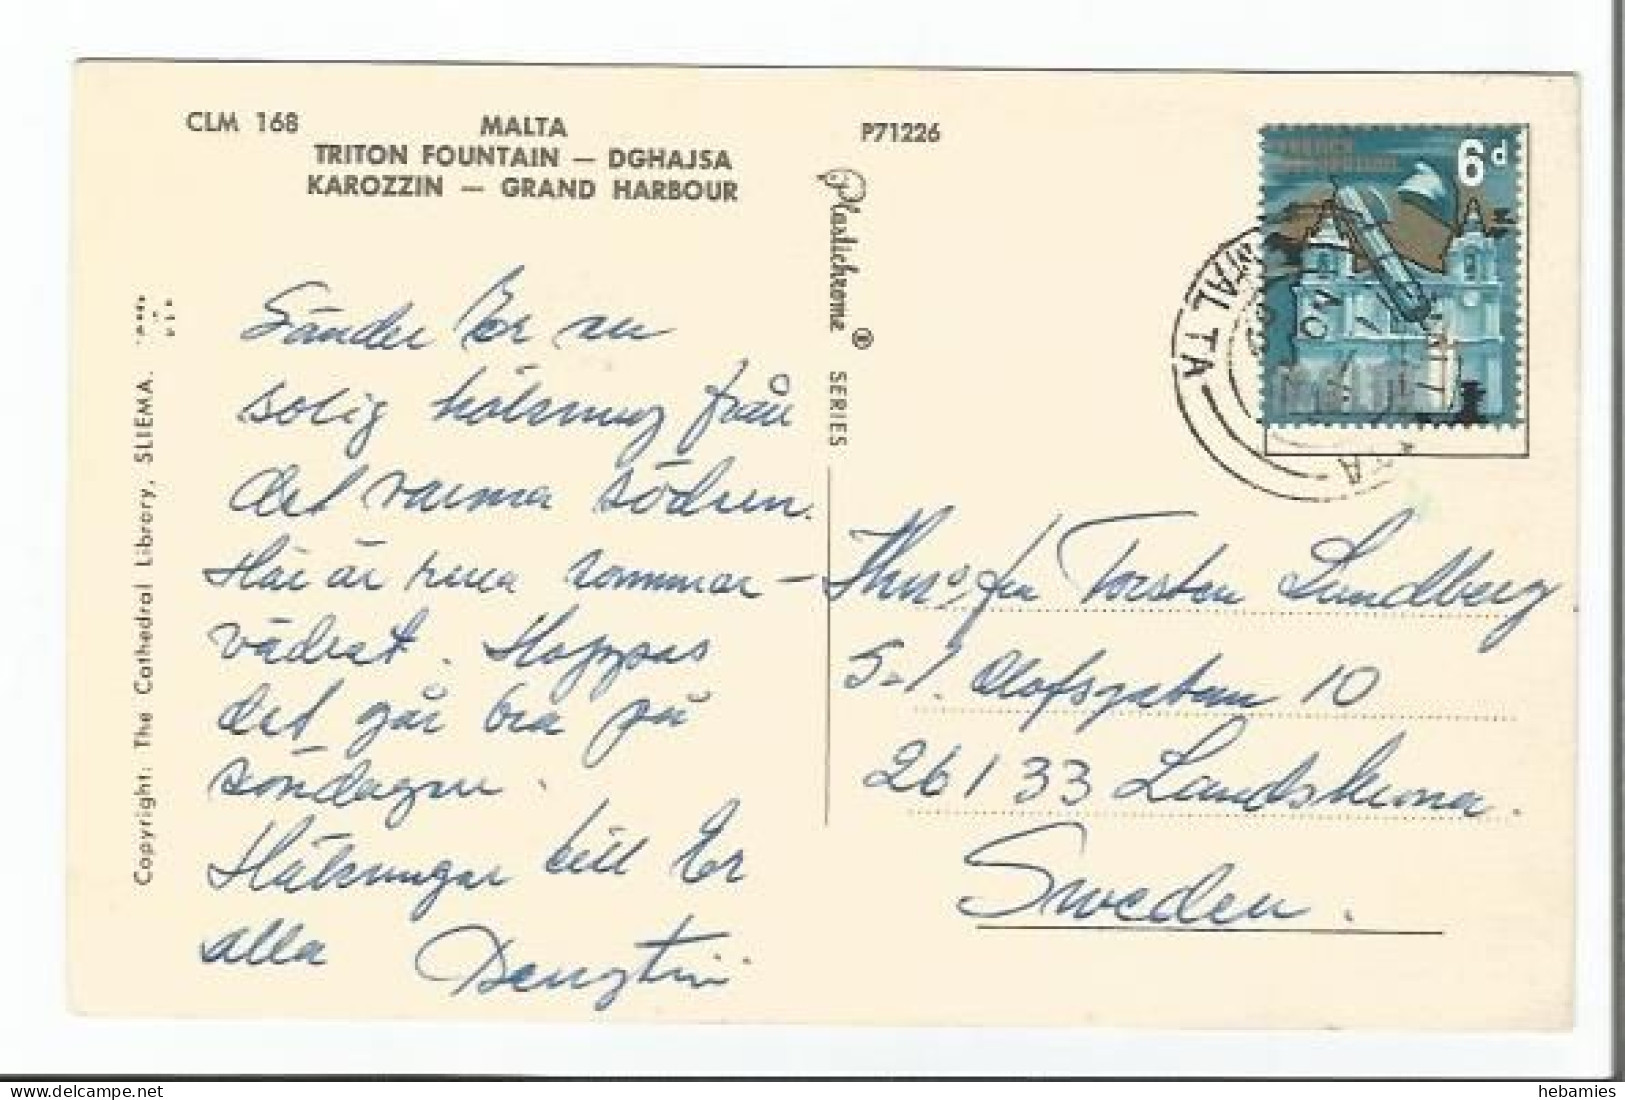 CLM 168
MALTA
TRITON FOUNTAIN — DGHAJSA
KAROZZIN — GRAND HARBOUR
P71226
6d
MALTA
Plastichrome ® SERIES
Copyright: The Cathedral Library, SLIEMA.
Sänder Er en
solig hälsning från
det varma södern.
Här är rena sommar-
vädret. Hoppas
det går bra på
söndagen.
Hälsningar till Er
alla
Torsten Lundberg
S:t. Olofsgatan 10
26133 Landskrona.
Sweden.
hebamies